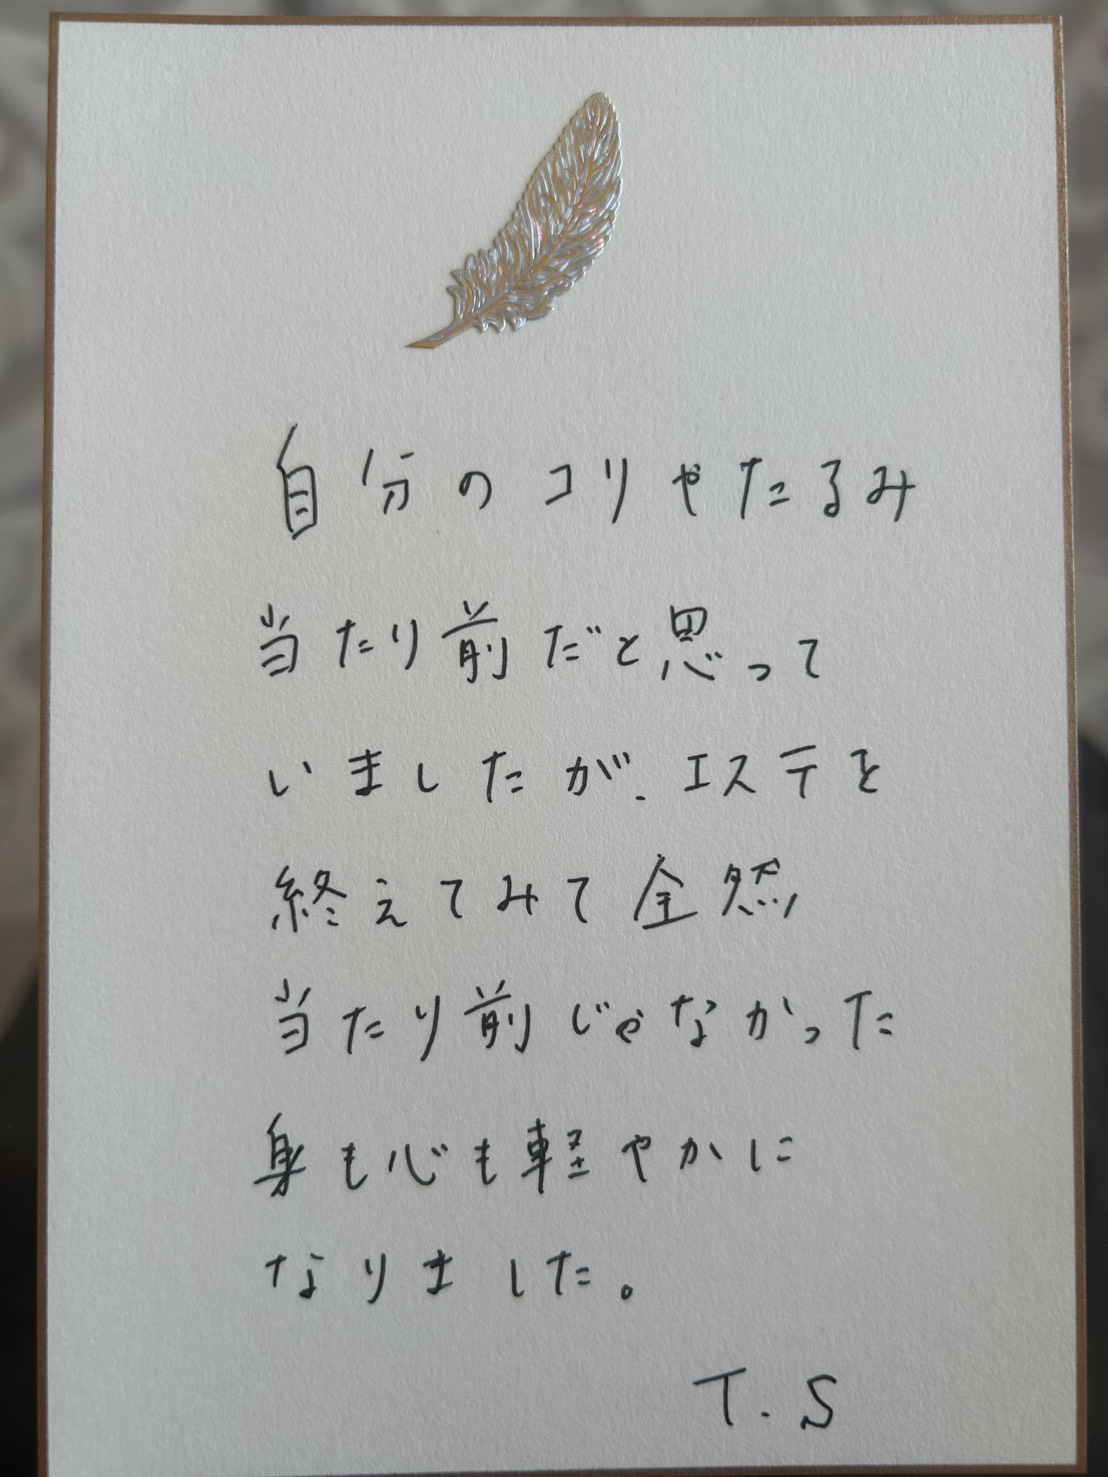 自分のコリやたるみ
当たり前だと思って
いましたが、エステを
終えてみて全然
当たり前じゃなかった
身も心も軽やかに
なりました。
T.S